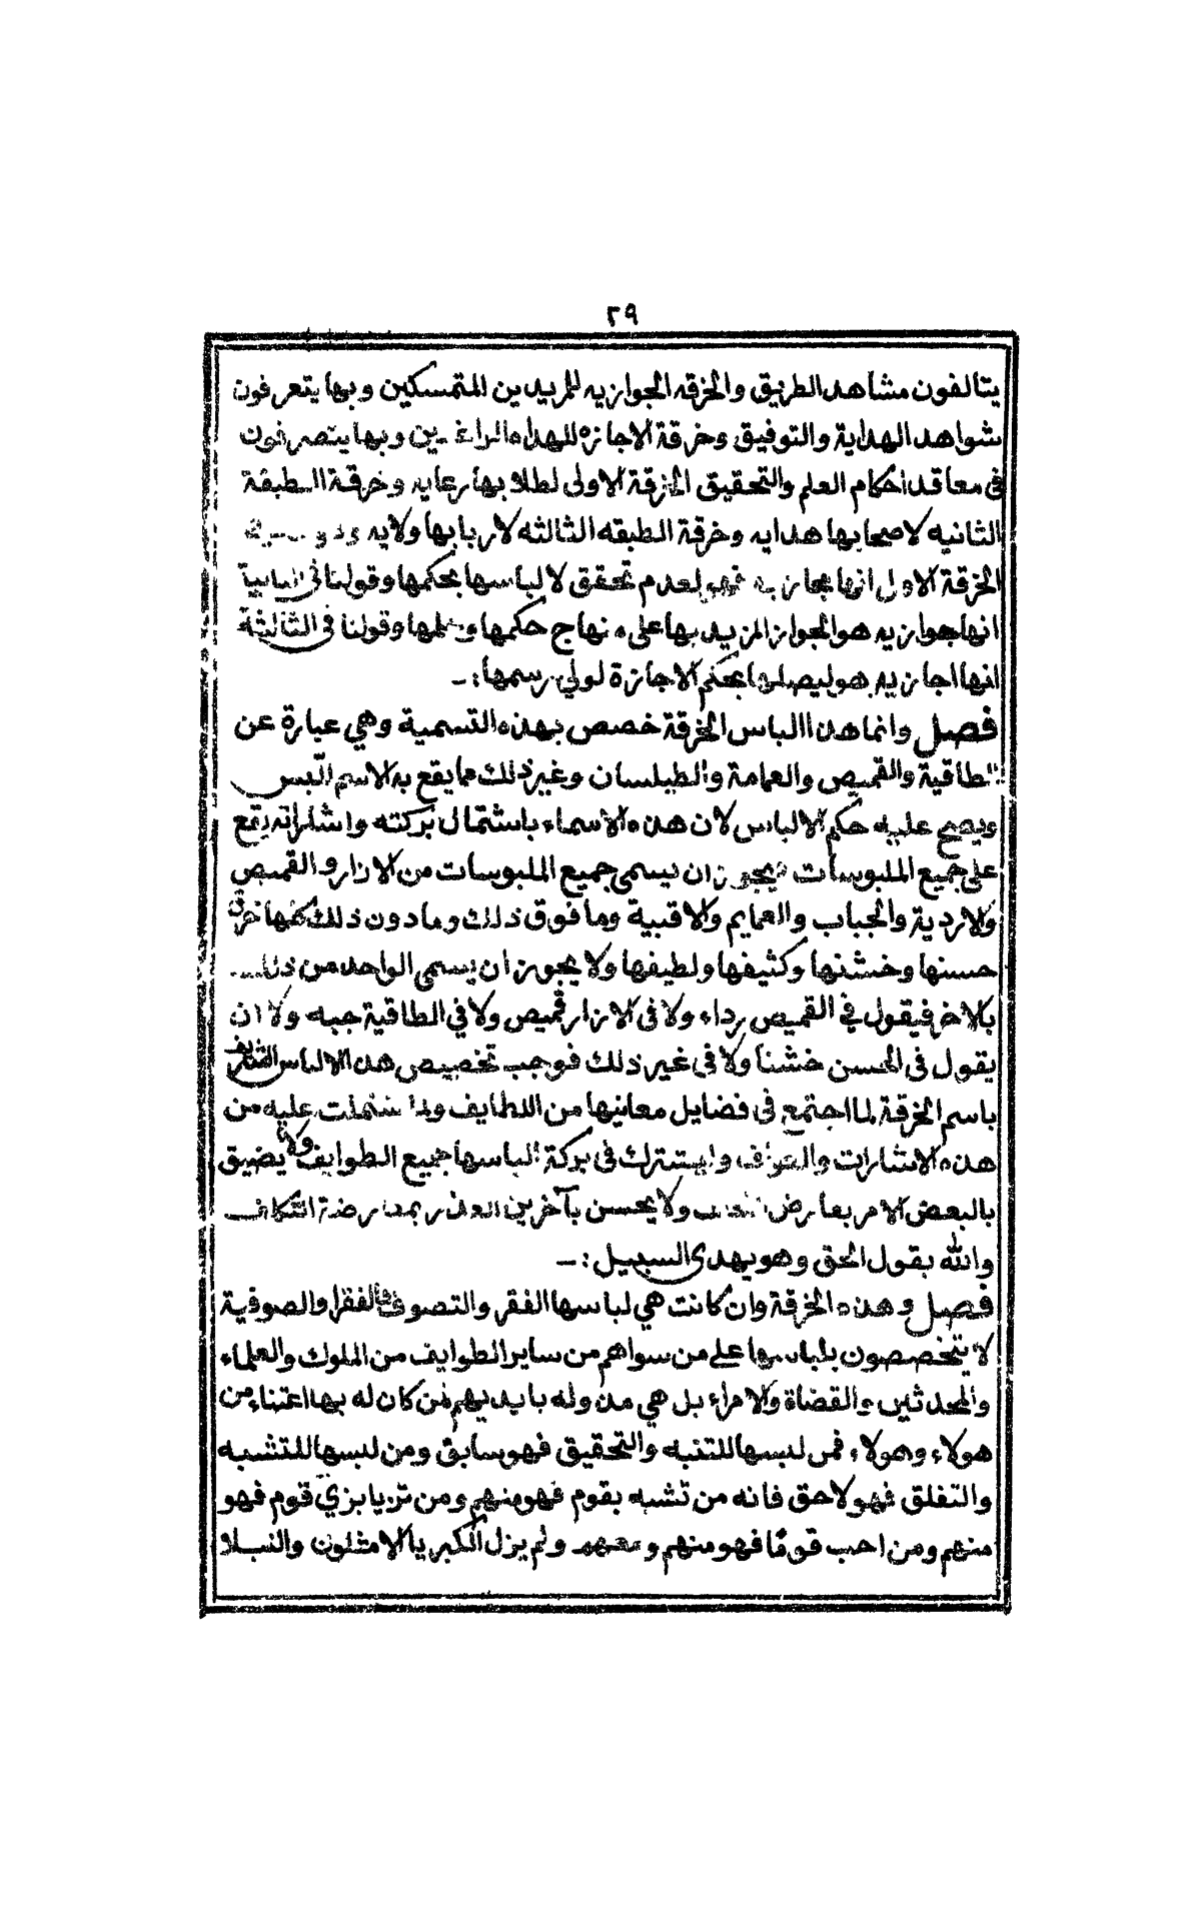 ٢٩
يتالفون مشاهد الطريق والخرقه الجوازيه للمريدين المتمسكين وبها يتعرفون
شواهد الهداية والتوفيق وخرقة الاجازه للهداه وبها يتصرفون
في معاقد احكام العلم والتحقيق الخرقة الاولى لطلابها رعايه وخرقة الطبقة
الثانيه لاصحابها هدايه وخرقة الطبقه الثالثه لاربابها ولايه
الخرقة الاولى انها مجازيه فهو لعدم تحقق لالباسها بحكمها وقولنا في الثانية
انها جوازيه هو الجواز المزيد بها على منهاج حكمها وقولنا في الثالثة
انها اجازيه هو ليصلها بحكم الاجازة لولي رسمها :ـ
فصل وانما هذا الباس الخرقة خصص بهذه التسمية وهي عبارة عن
الطاقية والقميص والعمامة والطيلسان وغير ذلك مما يقع به الاسم اللبس
ويصح عليه حكم الالباس لان هذه الاسماء باشتمال بركته واشاراته يقع
على جميع الملبوسات فيجوز ان يسمى جميع الملبوسات من الازار والقميص
والاردية والجباب والعمايم والاقبية وما فوق ذلك وما دون ذلك كلها خرق
حسنها وخشنها وكثيفها ولطيفها ولا يجوز ان يسمى الواحد من ذلك
بالاخر فيقول في القميص رداء ولا في الازار قميص ولا في الطاقية جبه ولا ان
يقول في الحسن خشنا ولا في غير ذلك فوجب تخصيص هذا الالباس الشريف
باسم الخرقة لما اجتمع في فضايل معانيها من اللطايف ولما اشتملت عليه من
هذه الاشارات والعوارف واشترك في بركة الباسها جميع الطوايف ولا يضيق
بالبعض الامر بعارض ولا يحسن بآخرين العذر بمعارضة التكلف
والله يقول الحق وهو يهدى السبيل :ـ
فصل وهذه الخرقة وان كانت هي لباس الفقر والتصوف فالفقرا والصوفية
لا يتخصصون بلباسها على من سواهم من ساير الطوايف من الملوك والعلماء
والمحدثين والقضاة والامراء بل هي مدوله بايديهم فمن كان له بها اعتناء من
هولاء وهولاء فمن لبسها للتنبه والتحقيق فهو سابق ومن لبسها للتشبه
والتفلق فهو لاحق فانه من تشبه بقوم فهو منهم ومن تزيا بزي قوم فهو
منهم ومن احب قوما فهو منهم ومعهم ولم يزل الامثلون والنبلا